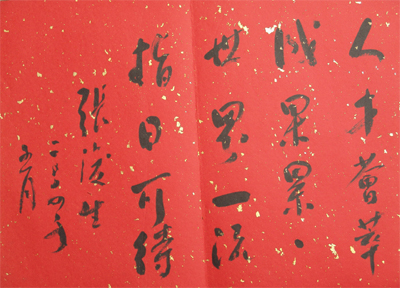 人才薈萃
成果累々
世界一流
指日可待
張浚生
二〇〇四年
五月